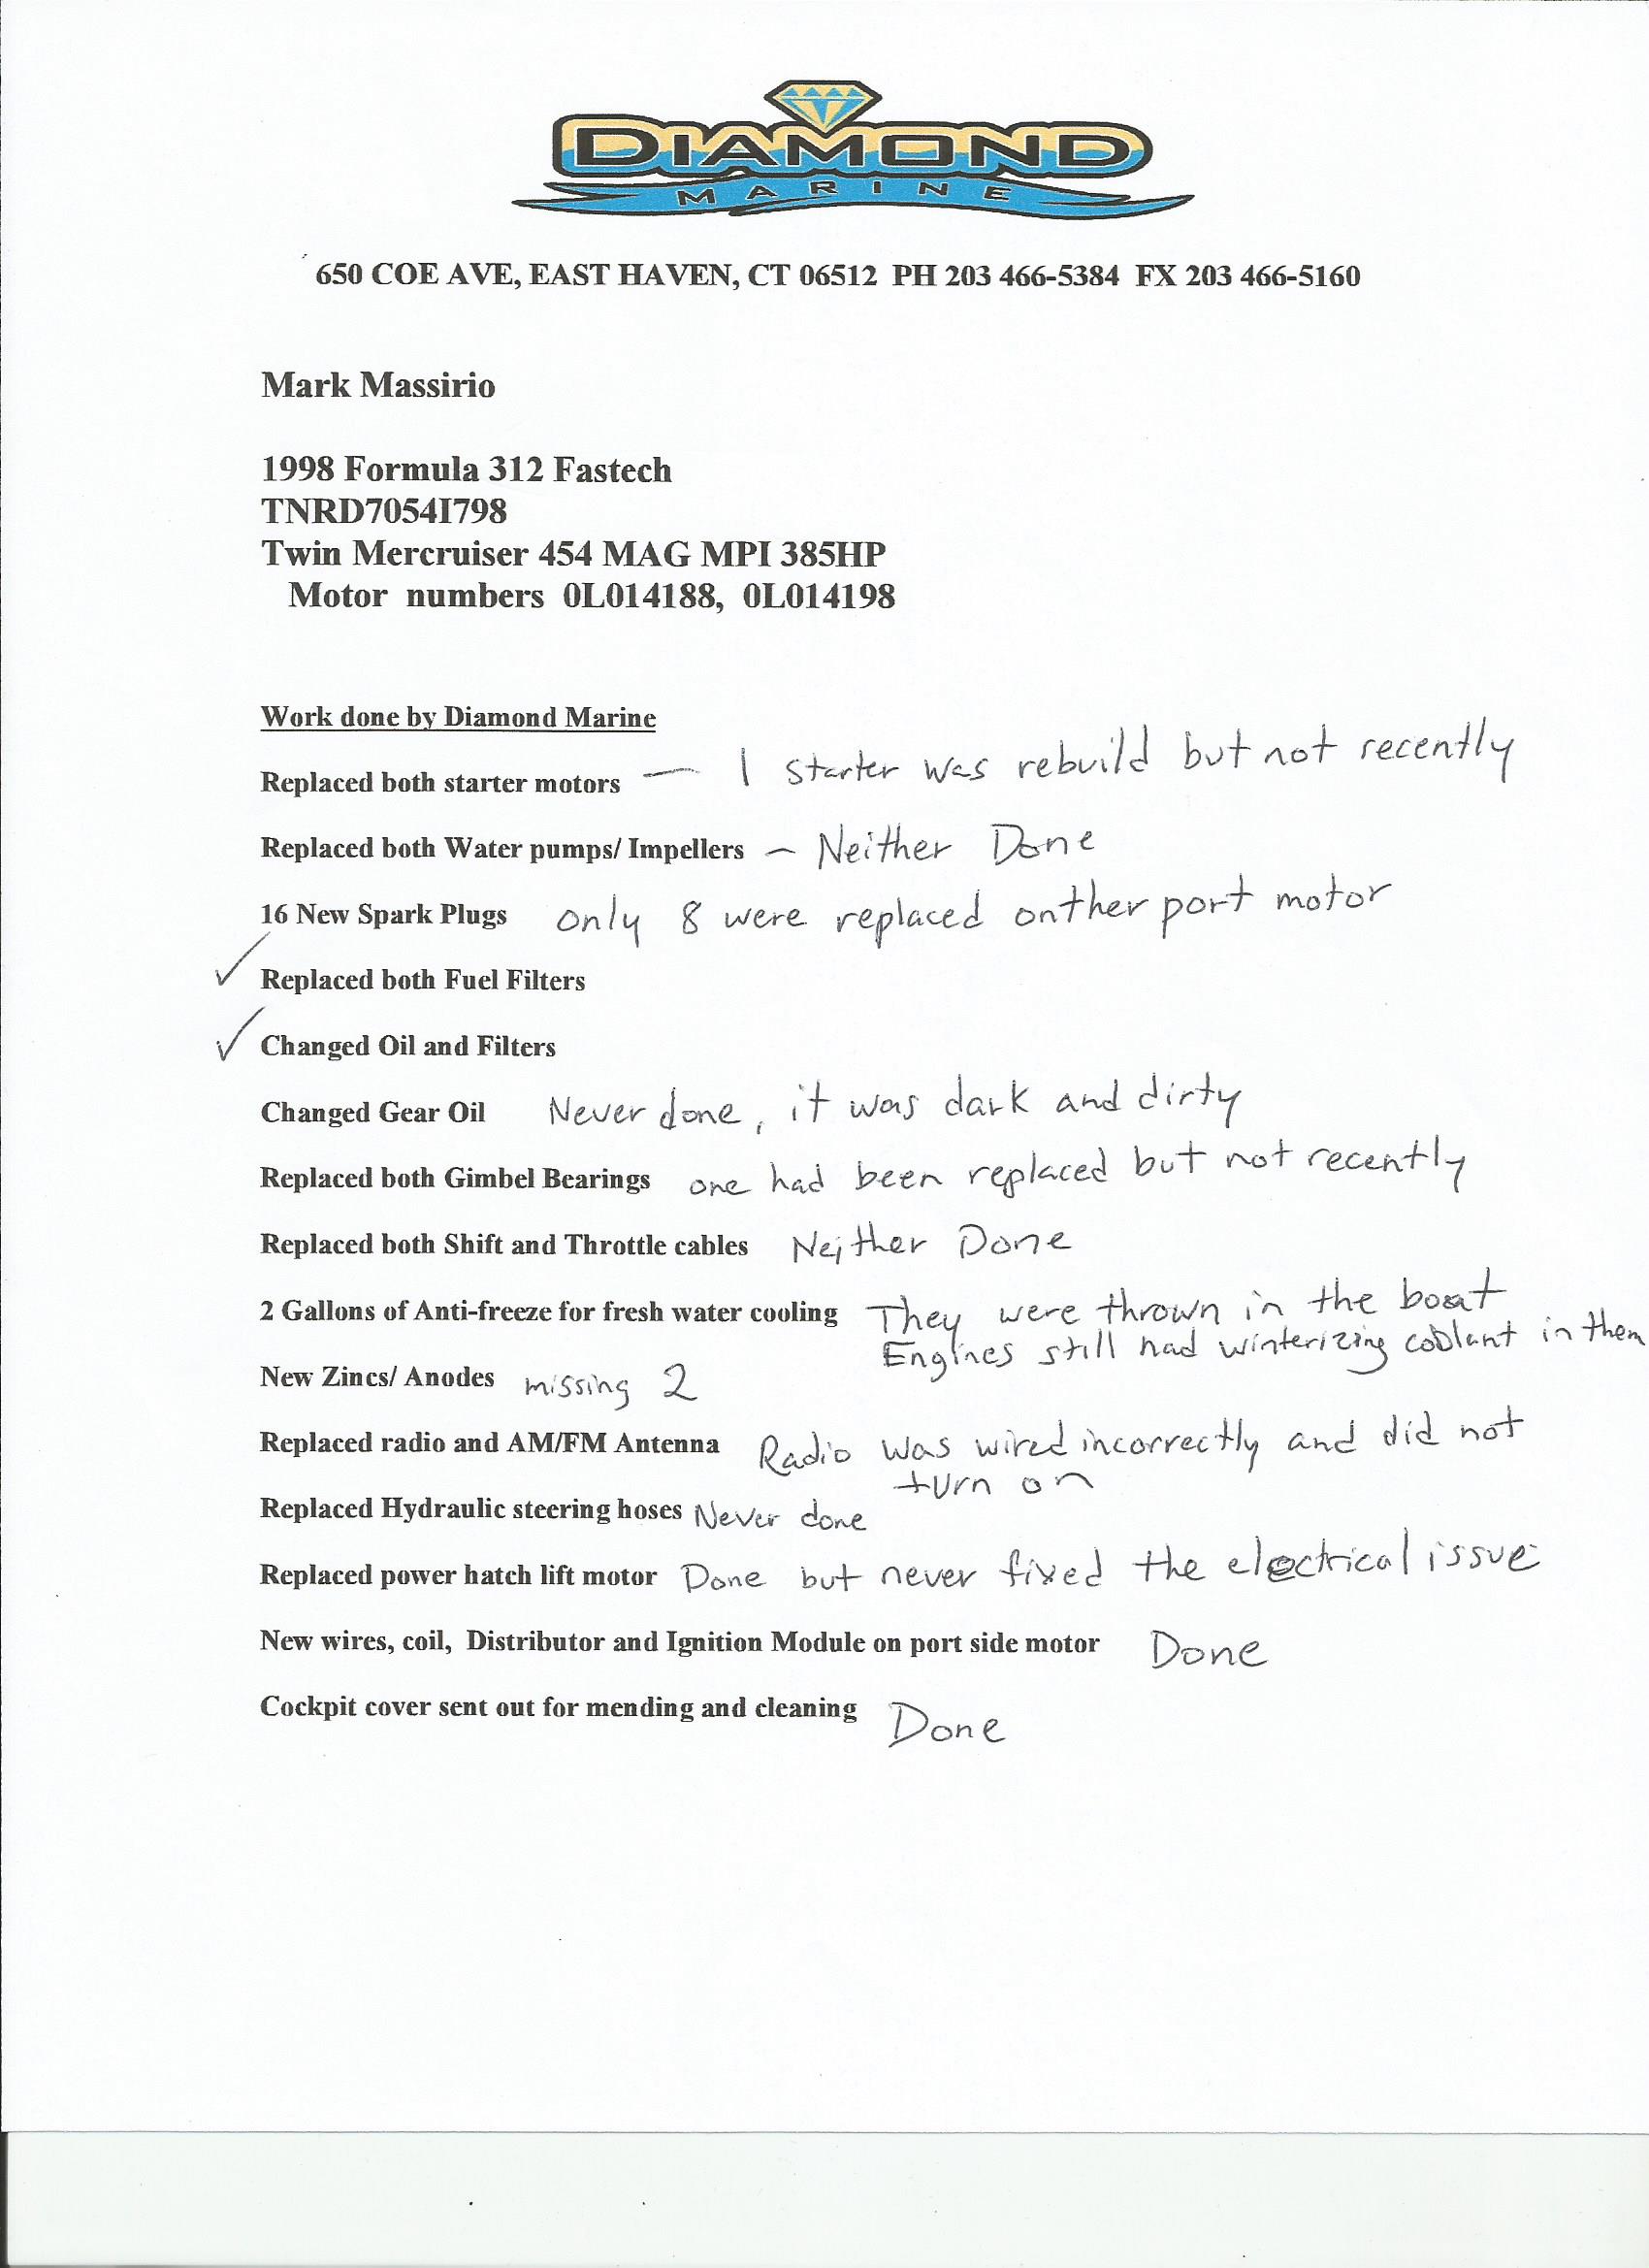 DIAMOND
MARINE
650 COE AVE, EAST HAVEN, CT 06512 PH 203 466-5384 FX 203 466-5160
Mark Massirio
1998 Formula 312 Fastech
TNRD7054I798
Twin Mercruiser 454 MAG MPI 385HP
Motor numbers 0L014188, 0L014198
Work done by Diamond Marine
Replaced both starter motors — 1 starter was rebuild but not recently
Replaced both Water pumps/ Impellers — Neither Done
16 New Spark Plugs only 8 were replaced onther port motor
✓ Replaced both Fuel Filters
✓ Changed Oil and Filters
Changed Gear Oil Never done, it was dark and dirty
Replaced both Gimbel Bearings one had been replaced but not recently
Replaced both Shift and Throttle cables Neither Done
2 Gallons of Anti-freeze for fresh water cooling They were thrown in the boat
Engines still had winterizing coolant in them
New Zincs/ Anodes missing 2
Replaced radio and AM/FM Antenna Radio was wired incorrectly and did not
turn on
Replaced Hydraulic steering hoses Never done
Replaced power hatch lift motor Done but never fixed the electrical issue
New wires, coil, Distributor and Ignition Module on port side motor Done
Cockpit cover sent out for mending and cleaning Done